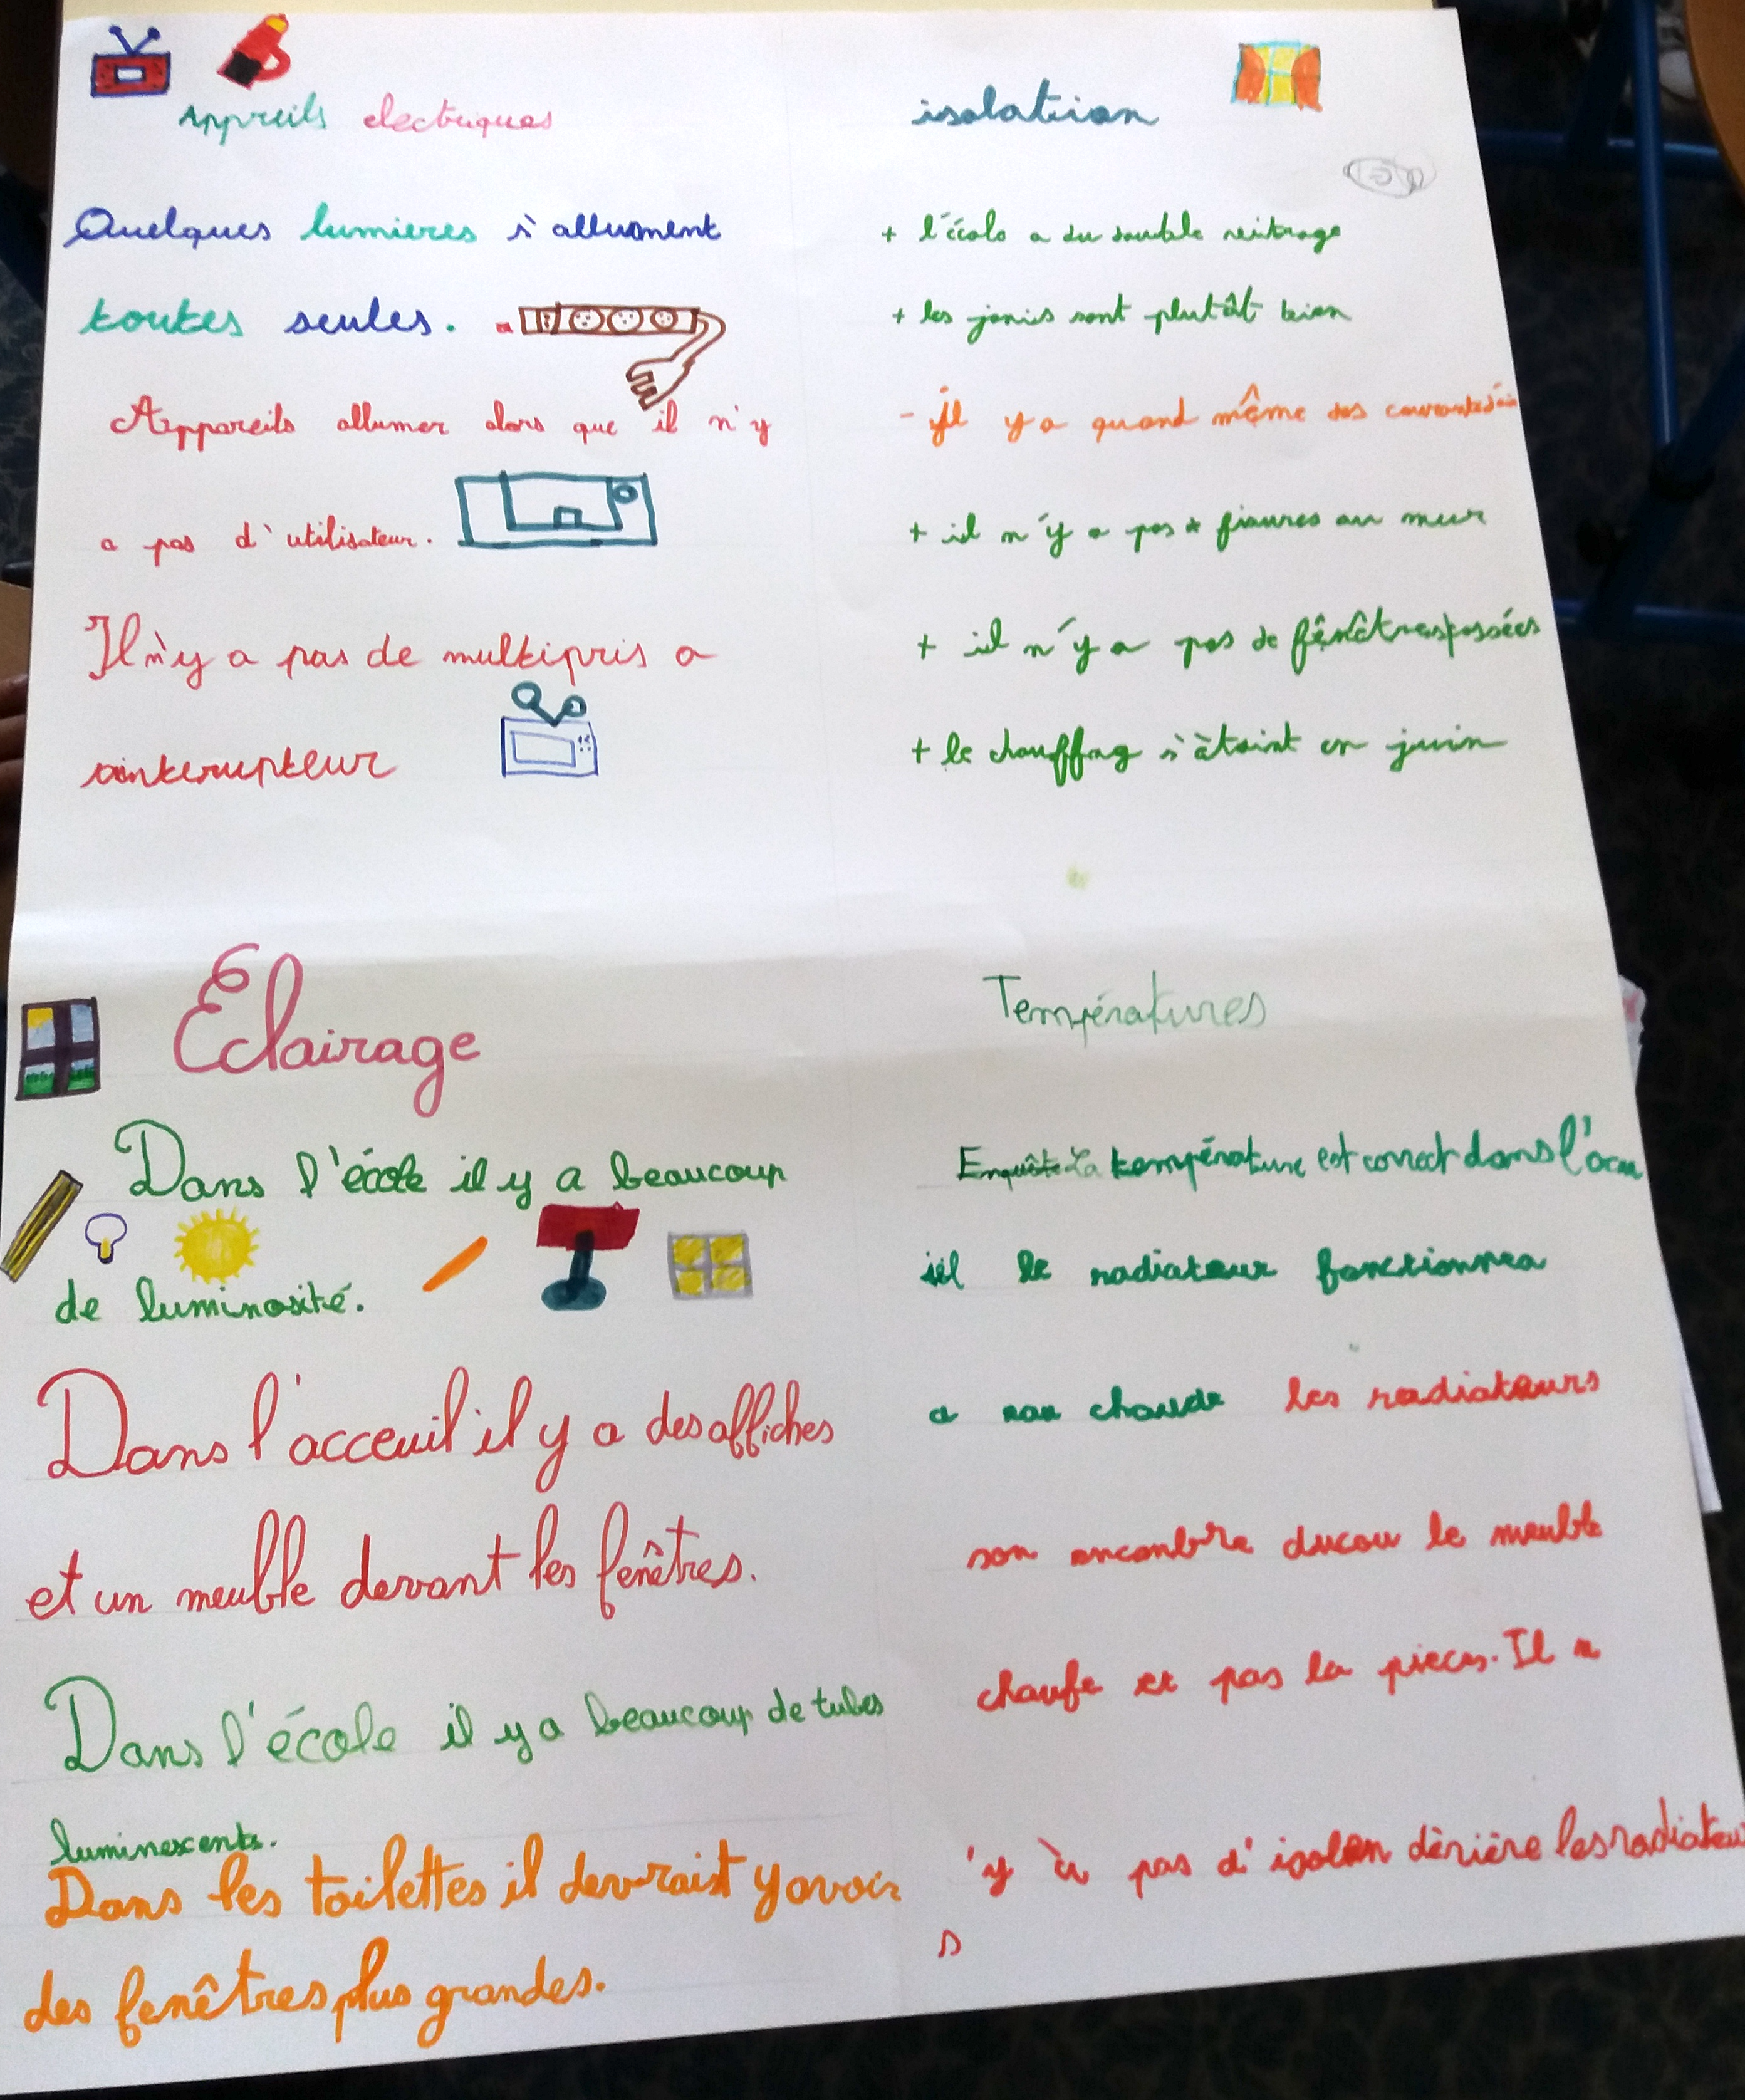 Appreils electriques
Quelques lumieres s'allument
toutes seules.
Appareils allumer alors que il n'y
a pas d'utilisateur.
Il n'y a pas de multipris a
interupteur
isolation
+ l'écolo a du double vitrage
+ les jonis sont plutôt bien
- il y a quand même des
+ il n'y a pas fisures au mur
+ il n'y a pas de fênêtres
+ le chauffag s'àtaint en juin
Eclairage
Dans l'école il y a beaucoup
de luminosité.
Dans l'acceuil il y a des affiches
et un meuble devant les fenêtres.
Dans l'école il y a beaucoup de tubes
luminexcents.
Dans les toilettes il devraist y avoir
des fenêtres plus grandes.
Températures
Enquête La température est correct dans l'acu
iel le radiateur fonctionnea
a chaude les radiateurs
son ancenbre ducou le meuble
chaufe et pas la pieces. Il n
'y à pas d'isolan dèrière les radiateur
s